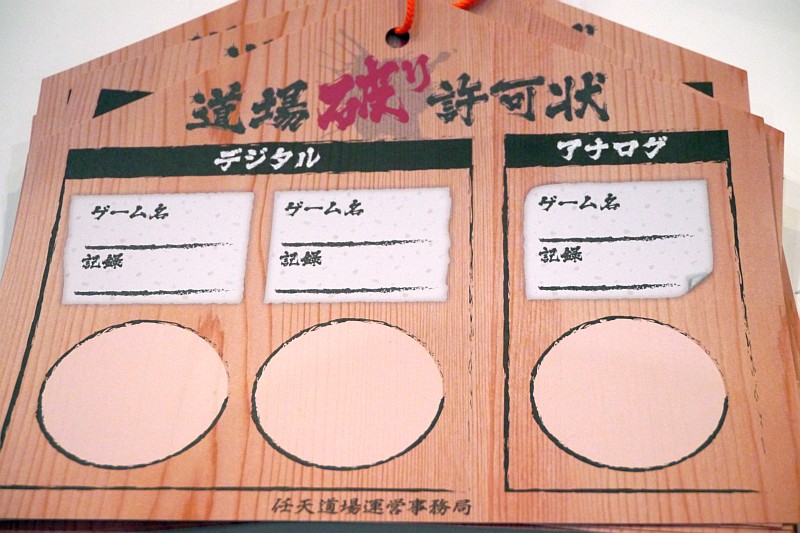 道場破り許可状
デジタル
アナログ
ゲーム名
記録
ゲーム名
記録
ゲーム名
記録
任天道場運営事務局